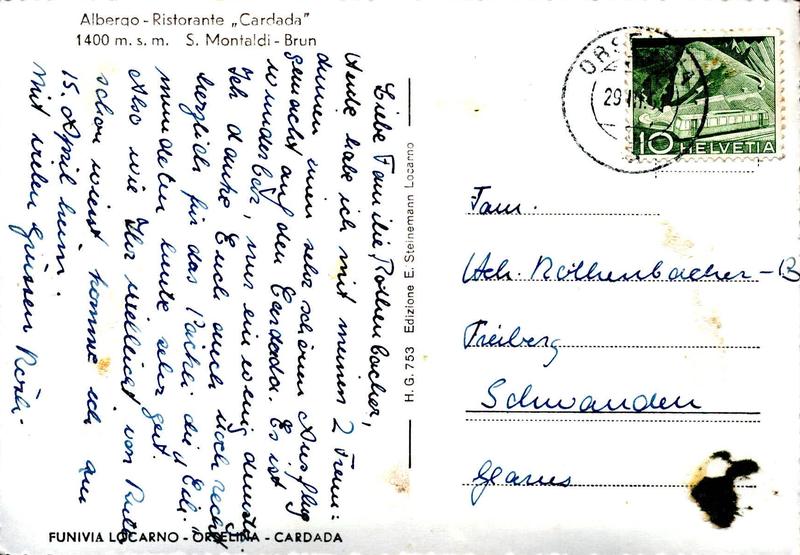 Albergo - Ristorante „Cardada"
1400 m. s. m. S. Montaldi - Brun
Liebe Familie Rothenbacher,
Heute habe ich mit meinen 2 Freun=
dinnen einen sehr schönen Ausflug
gemacht auf den Cardada. Es ist
wunderbar, nur ein wenig dunstig.
Ich danke Euch auch noch recht
herzlich für das Päckli, die
mundeten heute sehr gut.
Also wie Ihr vielleicht von Ruth
schon wisst komme ich am
15. April heim.
Mit vielen Grüssen Rösli.
FUNIVIA LOCARNO - ORSELINA - CARDADA
H. G. 753 Edizione E. Steinemann Locarno
ORSELINA
29
10 HELVETIA
Fam.
Rothenbacher-B
Freiberg
Schwanden
Glarus